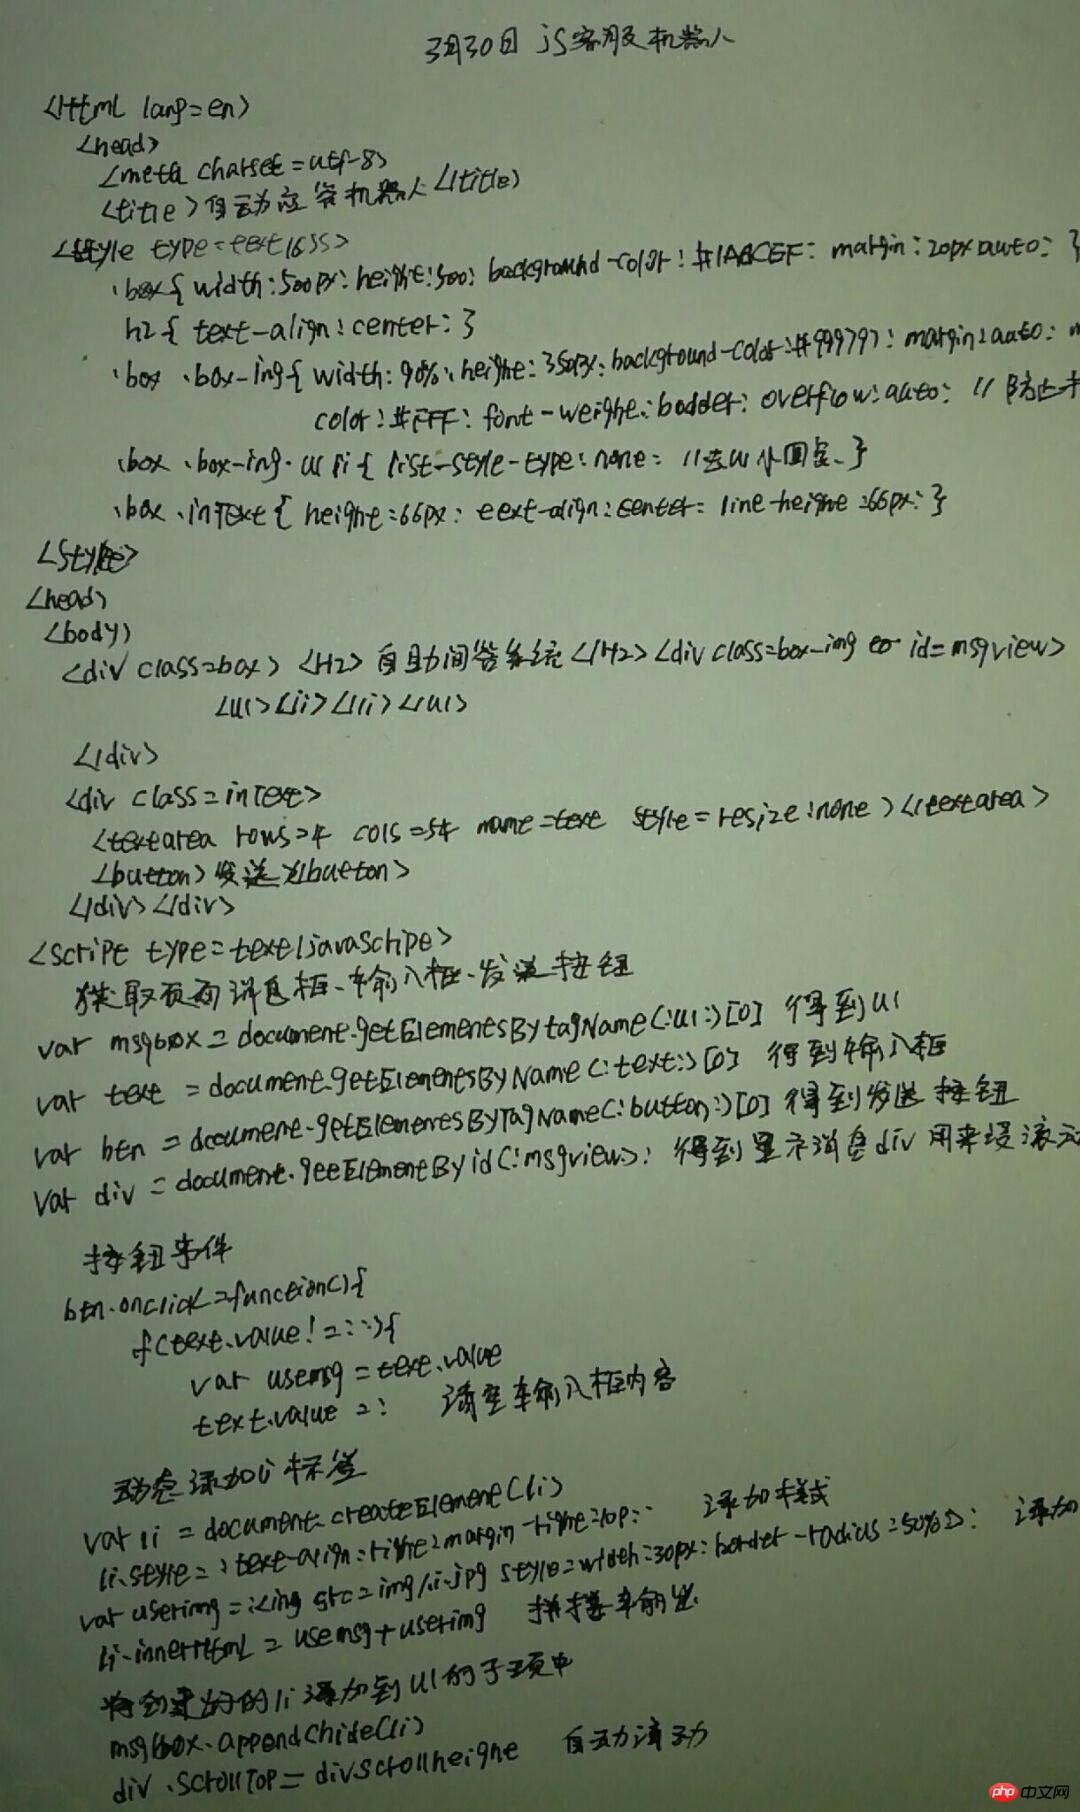 3月30日 js客服机器人
<Html lang=en>
<head>
<meta charset=utf-8>
<title>自动应答机器人</title>
<style type=text/css>
.box{ width:500px: height:500: background-color:#1ABCEF: margin:20px auto: }
h2{ text-align:center: }
.box .box-ing{ width:90%: height:350px: background-color:#999797: margin:auto:
color:#FFF: font-weight:bodder: overflow:auto: //防止
.box .box-ing.ul li{ list-style-type:none: //去ul小圆
.box .inText{ height:66px: eext-align:center: line-height:66px: }
<style>
<head>
<body>
<div class=box> <H2>自助问答系统</H2><div class=box-ing id=msgview>
<ul><li></li></ul>
</div>
<div class=intext>
<textarea rows=4 cols=54 name=text style=resize:none></textarea>
<button>发送</button>
</div></div>
<script type=text/javascript>
获取页面消息框、输入框、发送按钮
var msgbox=document.getElementsBytagName(:ul:)[0] 得到ul
var text =document.getElementsByName(:text:)[0] 得到输入框
var btn = document.getElementsByTagName(:button:)[0] 得到发送按钮
var div = document.getElementByid(:msgview): 得到显示消息div 用来设滚动
按钮事件
btn.onclick=function(){
if(text.value!=::){
var usemsg=text.value
text.value =: 清空输入框内容
动态添加li标签
var li = document.createElement(li)
li.style=:text-align:right:margin-right:10p:: 添加样式
var userimg=:<ing src=img/li.jpg style=width:30px:border-radius=50%>: 添加
li.innerHtml = usemsg+userimg 拼接输出
将创建好的li添加到ul的子项中
msgbox.appendChide(li)
div.scrollTop=div.scrollheighe 自动滚动
php中文网